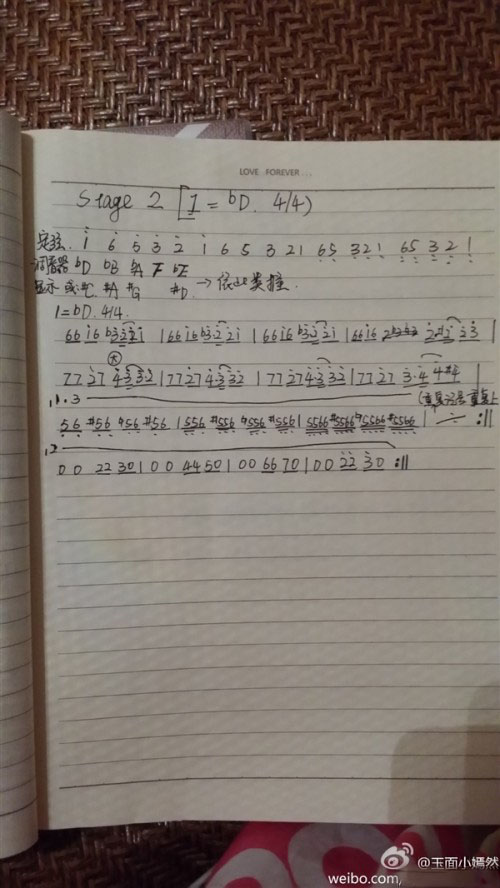 LOVE FOREVER...
Stage 2 [1 = bD. 4/4)
定弦. i 6 5 3 2 1 6 5 3 2 1 65 321 65 3 2 1
调音器 bD bB bA F bE
显示 或#C #A #G #D → 依此类推.
1=bD. 4/4.
66 i6 b3 2 2 i | 66 i6 b3 2 2 i | 66 i6 b3 2 2 i | 66 i6 2 #i 2 3 |
77 27 4 3 3 2 | 77 27 4 3 3 2 | 77 27 4 3 3 2 | 77 27 3·4 4 #4 |
1.3
56 #56 456 #56 | 556 #556 4556 #556 | 5566 #5566 45566 #5566 | :||
2
0 0 22 30 | 0 0 44 50 | 0 0 66 70 | 0 0 22 30 :||
@玉面小嫣然
weibo.com,